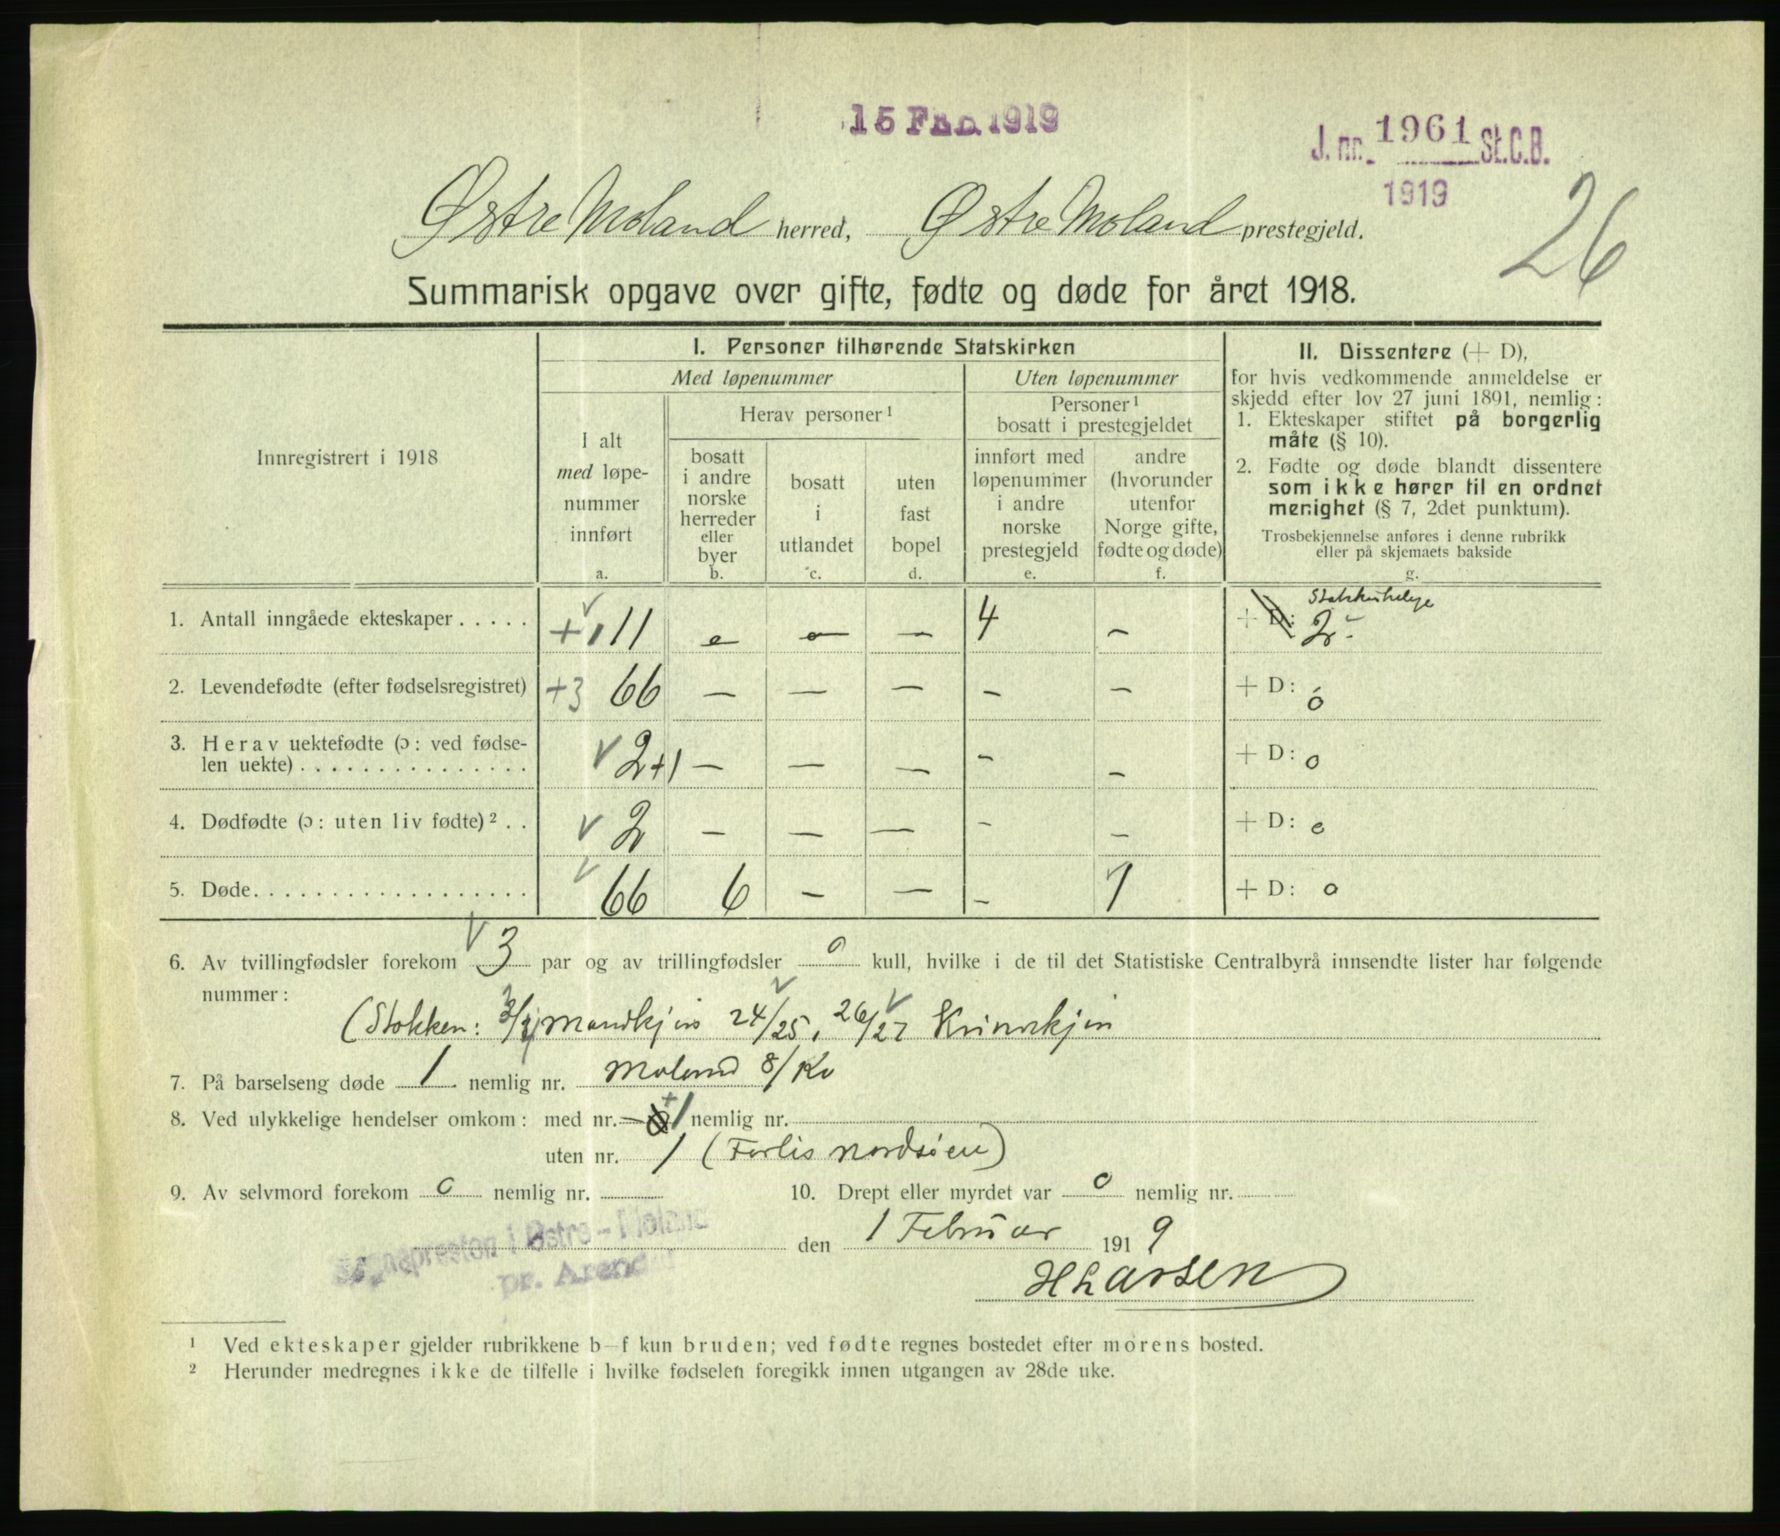 15 FEB 1919
J. nr. 1961 St.C.B.
1919
26
Østre Moland herred, Østre Moland prestegjeld.
Summarisk opgave over gifte, fødte og døde for året 1918.
Innregistrert i 1918
I. Personer tilhørende Statskirken
Med løpenummer
Uten løpenummer
I alt
med løpe-
nummer
innført
a.
Herav personer ¹
bosatt
i andre
norske
herreder
eller
byer
b.
bosatt
i
utlandet
c.
uten
fast
bopel
d.
Personer ¹
bosatt i prestegjeldet
innført med
løpenummer
i andre
norske
prestegjeld
e.
andre
(hvorunder
utenfor
Norge gifte,
fødte og døde)
f.
II. Dissentere (+ D),
for hvis vedkommende anmeldelse er
skjedd efter lov 27 juni 1891, nemlig:
1. Ekteskaper stiftet på borgerlig
måte (§ 10).
2. Fødte og døde blandt dissentere
som ikke hører til en ordnet
menighet (§ 7, 2det punktum).
Trosbekjennelse anføres i denne rubrikk
eller på skjemaets bakside
g.
1. Antall inngåede ekteskaper ..... +1 11 — — — 4 — + D: 2
2. Levendefødte (efter fødselsregistret) +3 66 — — — — — + D: 0
3. Herav uektefødte (ɔ: ved fødse-
len uekte) ............... 2+1 — — — — — + D: 0
4. Dødfødte (ɔ: uten liv fødte) ² .. 2 — — — — — + D: 0
5. Døde .................. 66 6 — — — 1 + D: 0
6. Av tvillingfødsler forekom 3 par og av trillingfødsler 0 kull, hvilke i de til det Statistiske Centralbyrå innsendte lister har følgende
nummer:
(Stokken: Mandkjøn 24/25, 26/27 Kvinnekjøn
7. På barselseng døde 1 nemlig nr. Moland 8/Kv
8. Ved ulykkelige hendelser omkom: med nr. — +1 nemlig nr.
uten nr. 1 (Forlis Nordsøen)
9. Av selvmord forekom 0 nemlig nr.
10. Drept eller myrdet var 0 nemlig nr.
Sognepresten i Østre-Moland
pr. Arendal
den 1 Februar 1919
H Larsen
¹ Ved ekteskaper gjelder rubrikkene b—f kun bruden; ved fødte regnes bostedet efter morens bosted.
² Herunder medregnes ikke de tilfelle i hvilke fødselen foregikk innen utgangen av 28de uke.